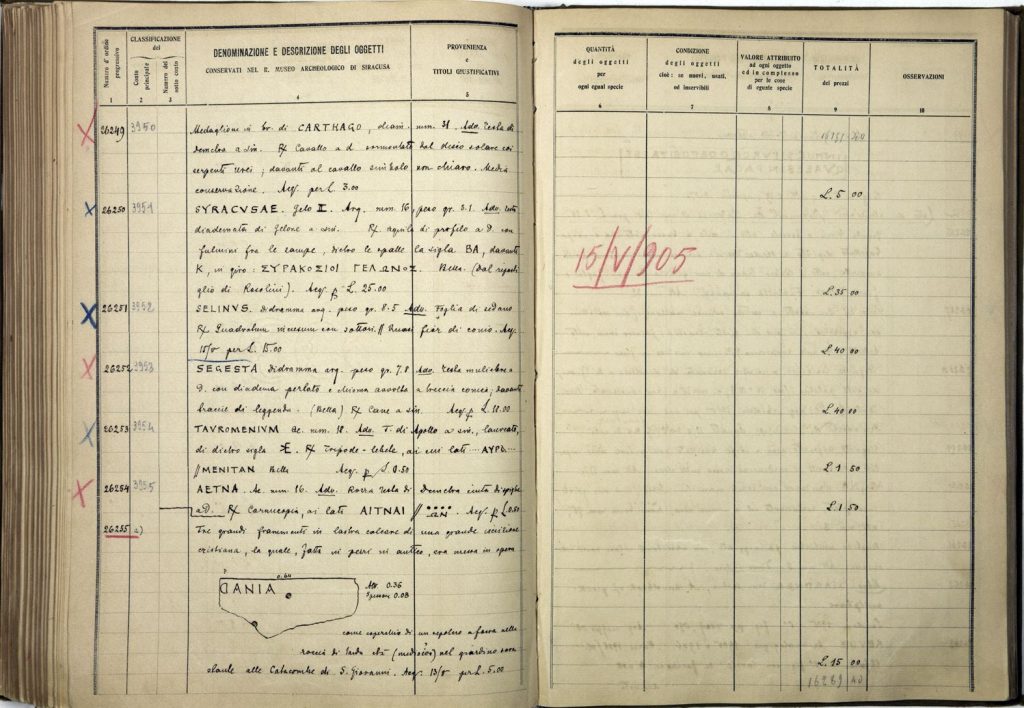 Numero d'ordine progressivo
CLASSIFICAZIONE del
Conto principale
Numero del sotto conto
DENOMINAZIONE E DESCRIZIONE DEGLI OGGETTI
CONSERVATI NEL R. MUSEO ARCHEOLOGICO DI SIRACUSA
PROVENIENZA
e
TITOLI GIUSTIFICATIVI
1 2 3 4 5
26249 3950 Medaglione in br. di CARTHAGO, diam. mm. 31. Ado. Testa di
demetra a sin. Rx Cavallo a d. sormontato dal disco solare coi
serpenti urei; davanti al cavallo simbolo non chiaro. Media
conservazione. Acq. per L. 3.00
26250 3951 SYRACVSAE. Gelo II. Arg. mm. 16, peso gr. 5.1. Ado. testa
diademata di Gelone a sin. Rx aquila di profilo a D. con
fulmini fra le zampe, dietro le spalle la sigla BA, davanti
K, in giro: ΣΥΡΑΚΟΣΙΟΙ ΓΕΛΩΝΟΣ. Bella (Dal ripostiglio
di Rosolini). Acq. p. L. 25.00
26251 3952 SELINVS. Didramma arg. peso gr. 8.5 Ado. Foglia di sedano
Rx Quadratum incusum con settori. // fior di conio. Acq.
15/V per L. 15.00
26252 3953 SEGESTA Didramma arg. peso gr. 7.8 Ado. testa muliebre a
D. con diadema perlato e chioma avvolta a treccia davanti
traccie di leggenda. (Bella) Rx Cane a sin. Acq. p. L. 18.00
26253 3954 TAVROMENIVM Ae. mm. 18. Ado. T. di Apollo a sin., laureato,
di dietro sigla Rx Tripode-lebete, ai cui lati ....ΑΥΡΟ....
//MENITAN Bella Acq. p. L. 0.50
26254 3955 AETNA. Ae. mm. 16. Ado. Rozza testa di Demetra cinta di spighe
a D. Rx Cornucopia, ai lati AITNAI // ΩΝ. Acq. p. L. 0.50
26255 a) Tre grandi frammenti in lastra calcare di una grande iscrizione
cristiana, la quale, fatta in pezzi in antico, era messa in opera
? 0.64
DANIA
Alt. 0.36
Spessore 0.08
come coperchio di un sepolcro a fossa nella
roccia di tarda età (medioevo?) nel giardino sovra
stante alle Catacombe di S. Giovanni. Acq. 15/V per L. 5.00
QUANTITÀ
degli oggetti
per
ogni egual specie
CONDIZIONE
degli oggetti
cioè: se nuovi, usati,
od inservibili
VALORE ATTRIBUITO
ad ogni oggetto
ed in complesso
per le cose
di eguale specie
TOTALITÀ
dei prezzi
OSSERVAZIONI
6 7 8 9 10
L. 5 00
15/V/905
L. 35 00
L. 40 00
L. 40 00
L. 1 50
L. 1 50
L. 15 00